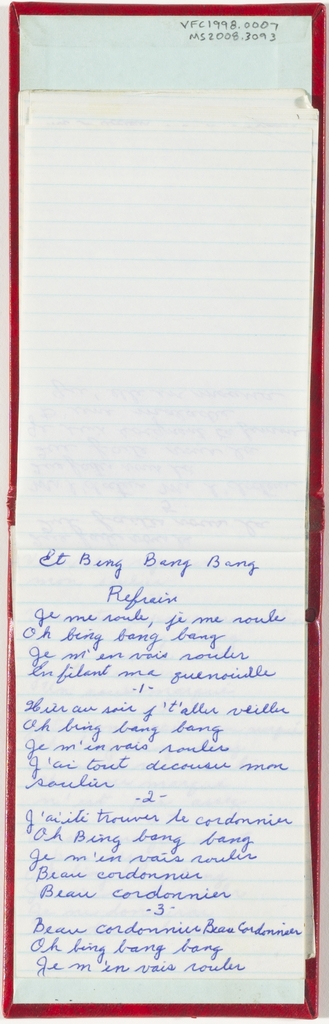 VFC1998.0007
MS2008.3093
Et Bing Bang Bang
Refrain
Je me roule, je me roule
Oh bing bang bang
Je m'en vais rouler
En filant ma quenouille
-1-
Hier au soir j't'aller veiller
Oh bing bang bang
Je m'en vais rouler
J'ai tout decousu mon
soulier
-2-
J'ai été trouver le cordonnier
Oh Bing bang bang
Je m'en vais rouler
Beau cordonnier
Beau cordonnier
-3-
Beau cordonnier Beau Cordonnier
Oh bing bang bang
Je m'en vais rouler